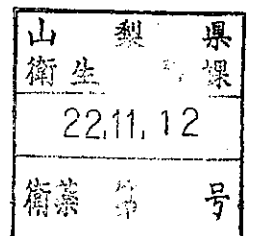 山梨県
衛生 課
22.11.12
衛薬 第 号